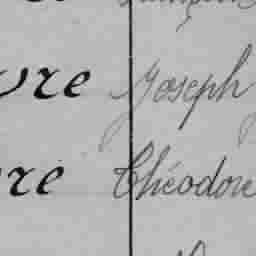 vre Joseph
re Théodore